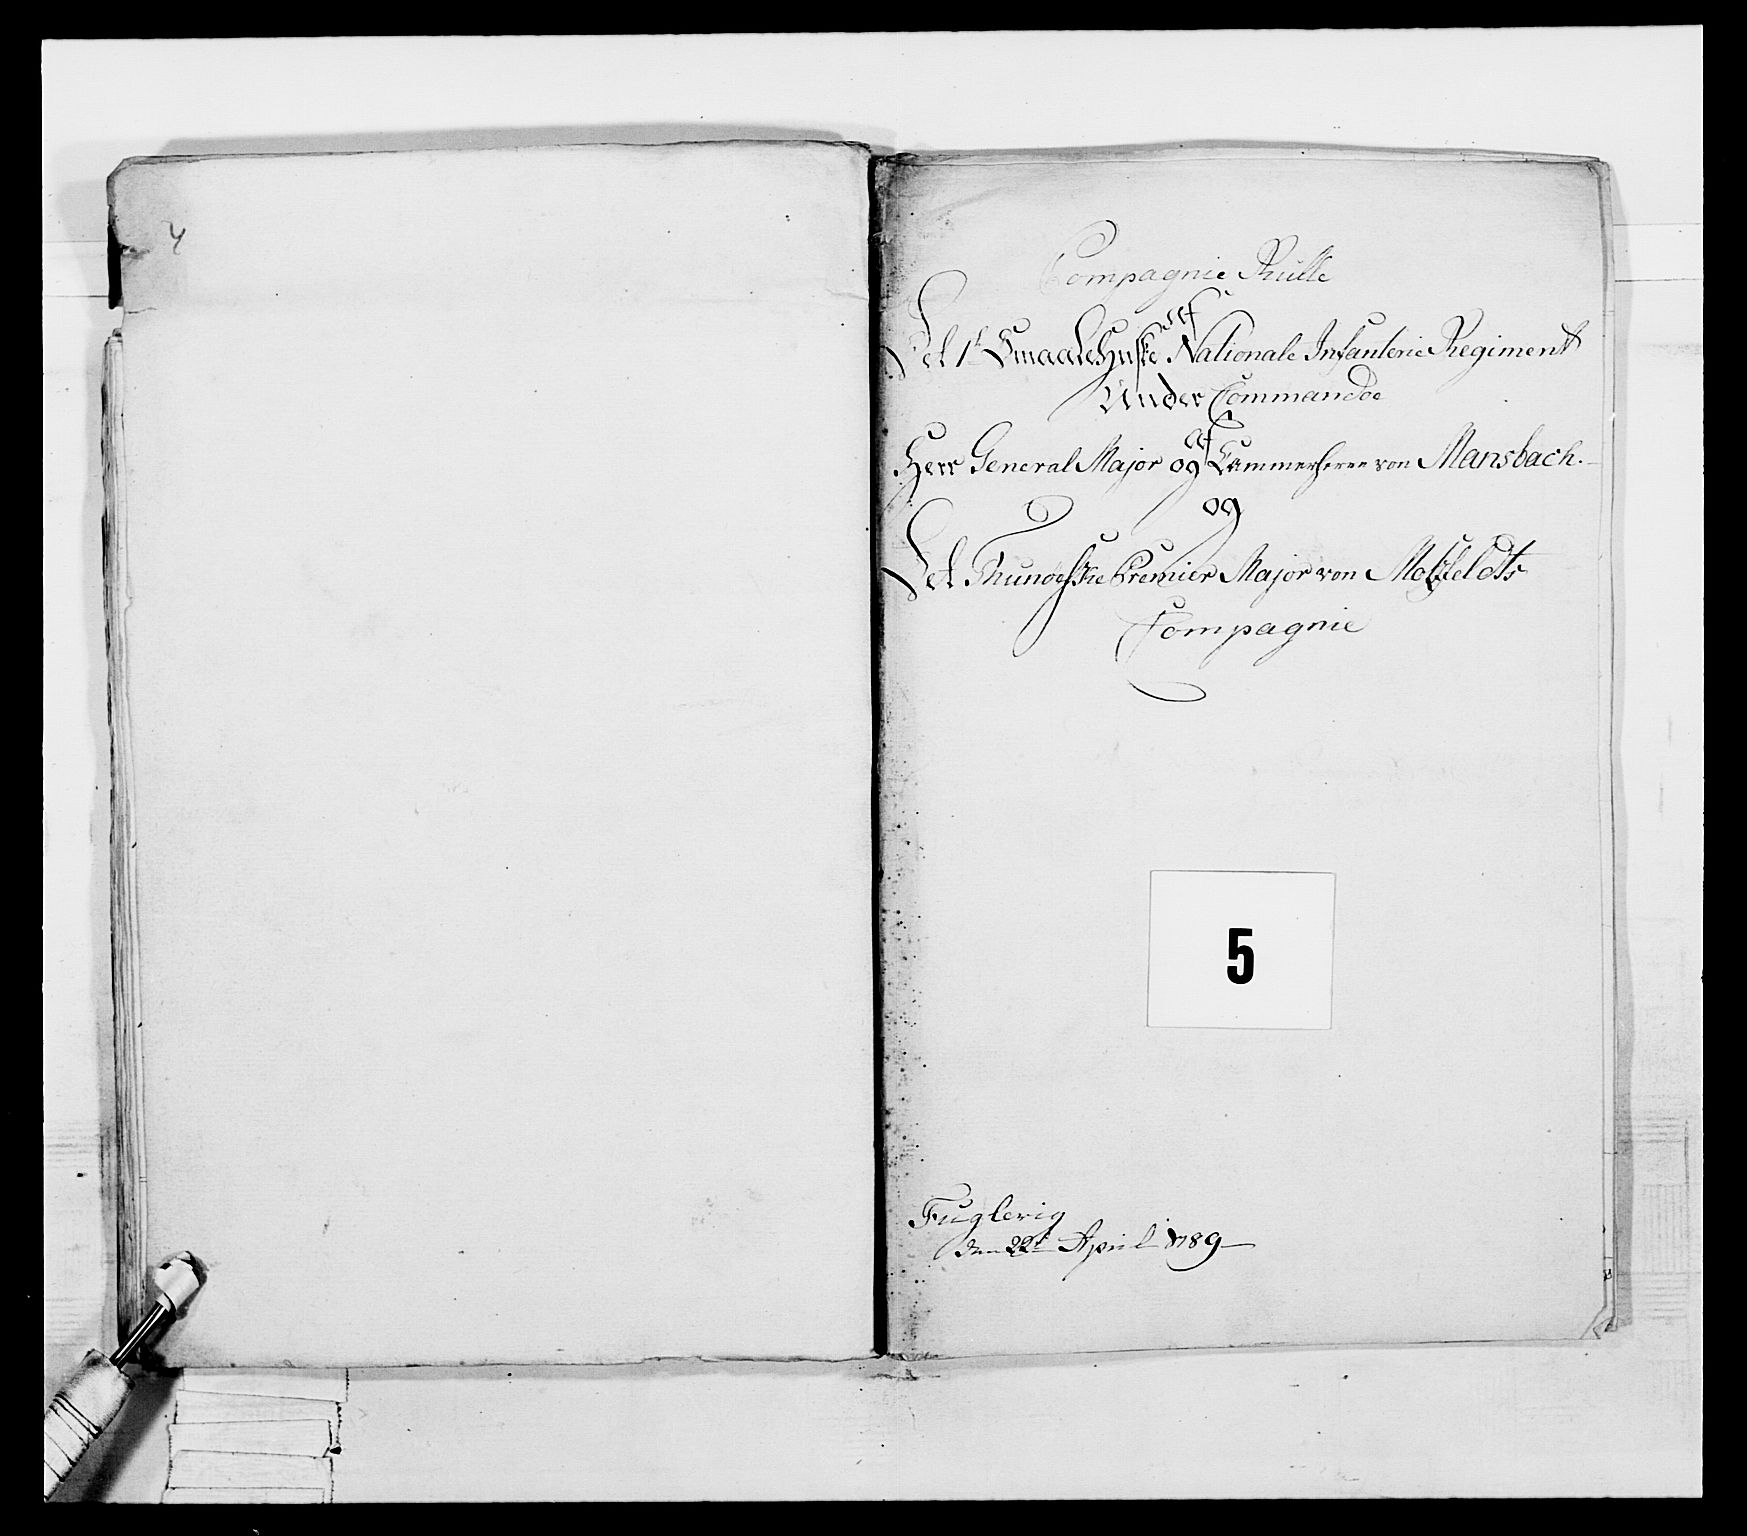 4
Compagnie Rulle
af
Det 1te Smaalehnske Nationale Infanterie Regiment
Under Commandoe
af
Herr General Major og Cammerherre von Mansbach.
og
Det Thunöeske Premier Major von Motzfeldts
Compagnie
5
Fuglevig
den 22t April 1789